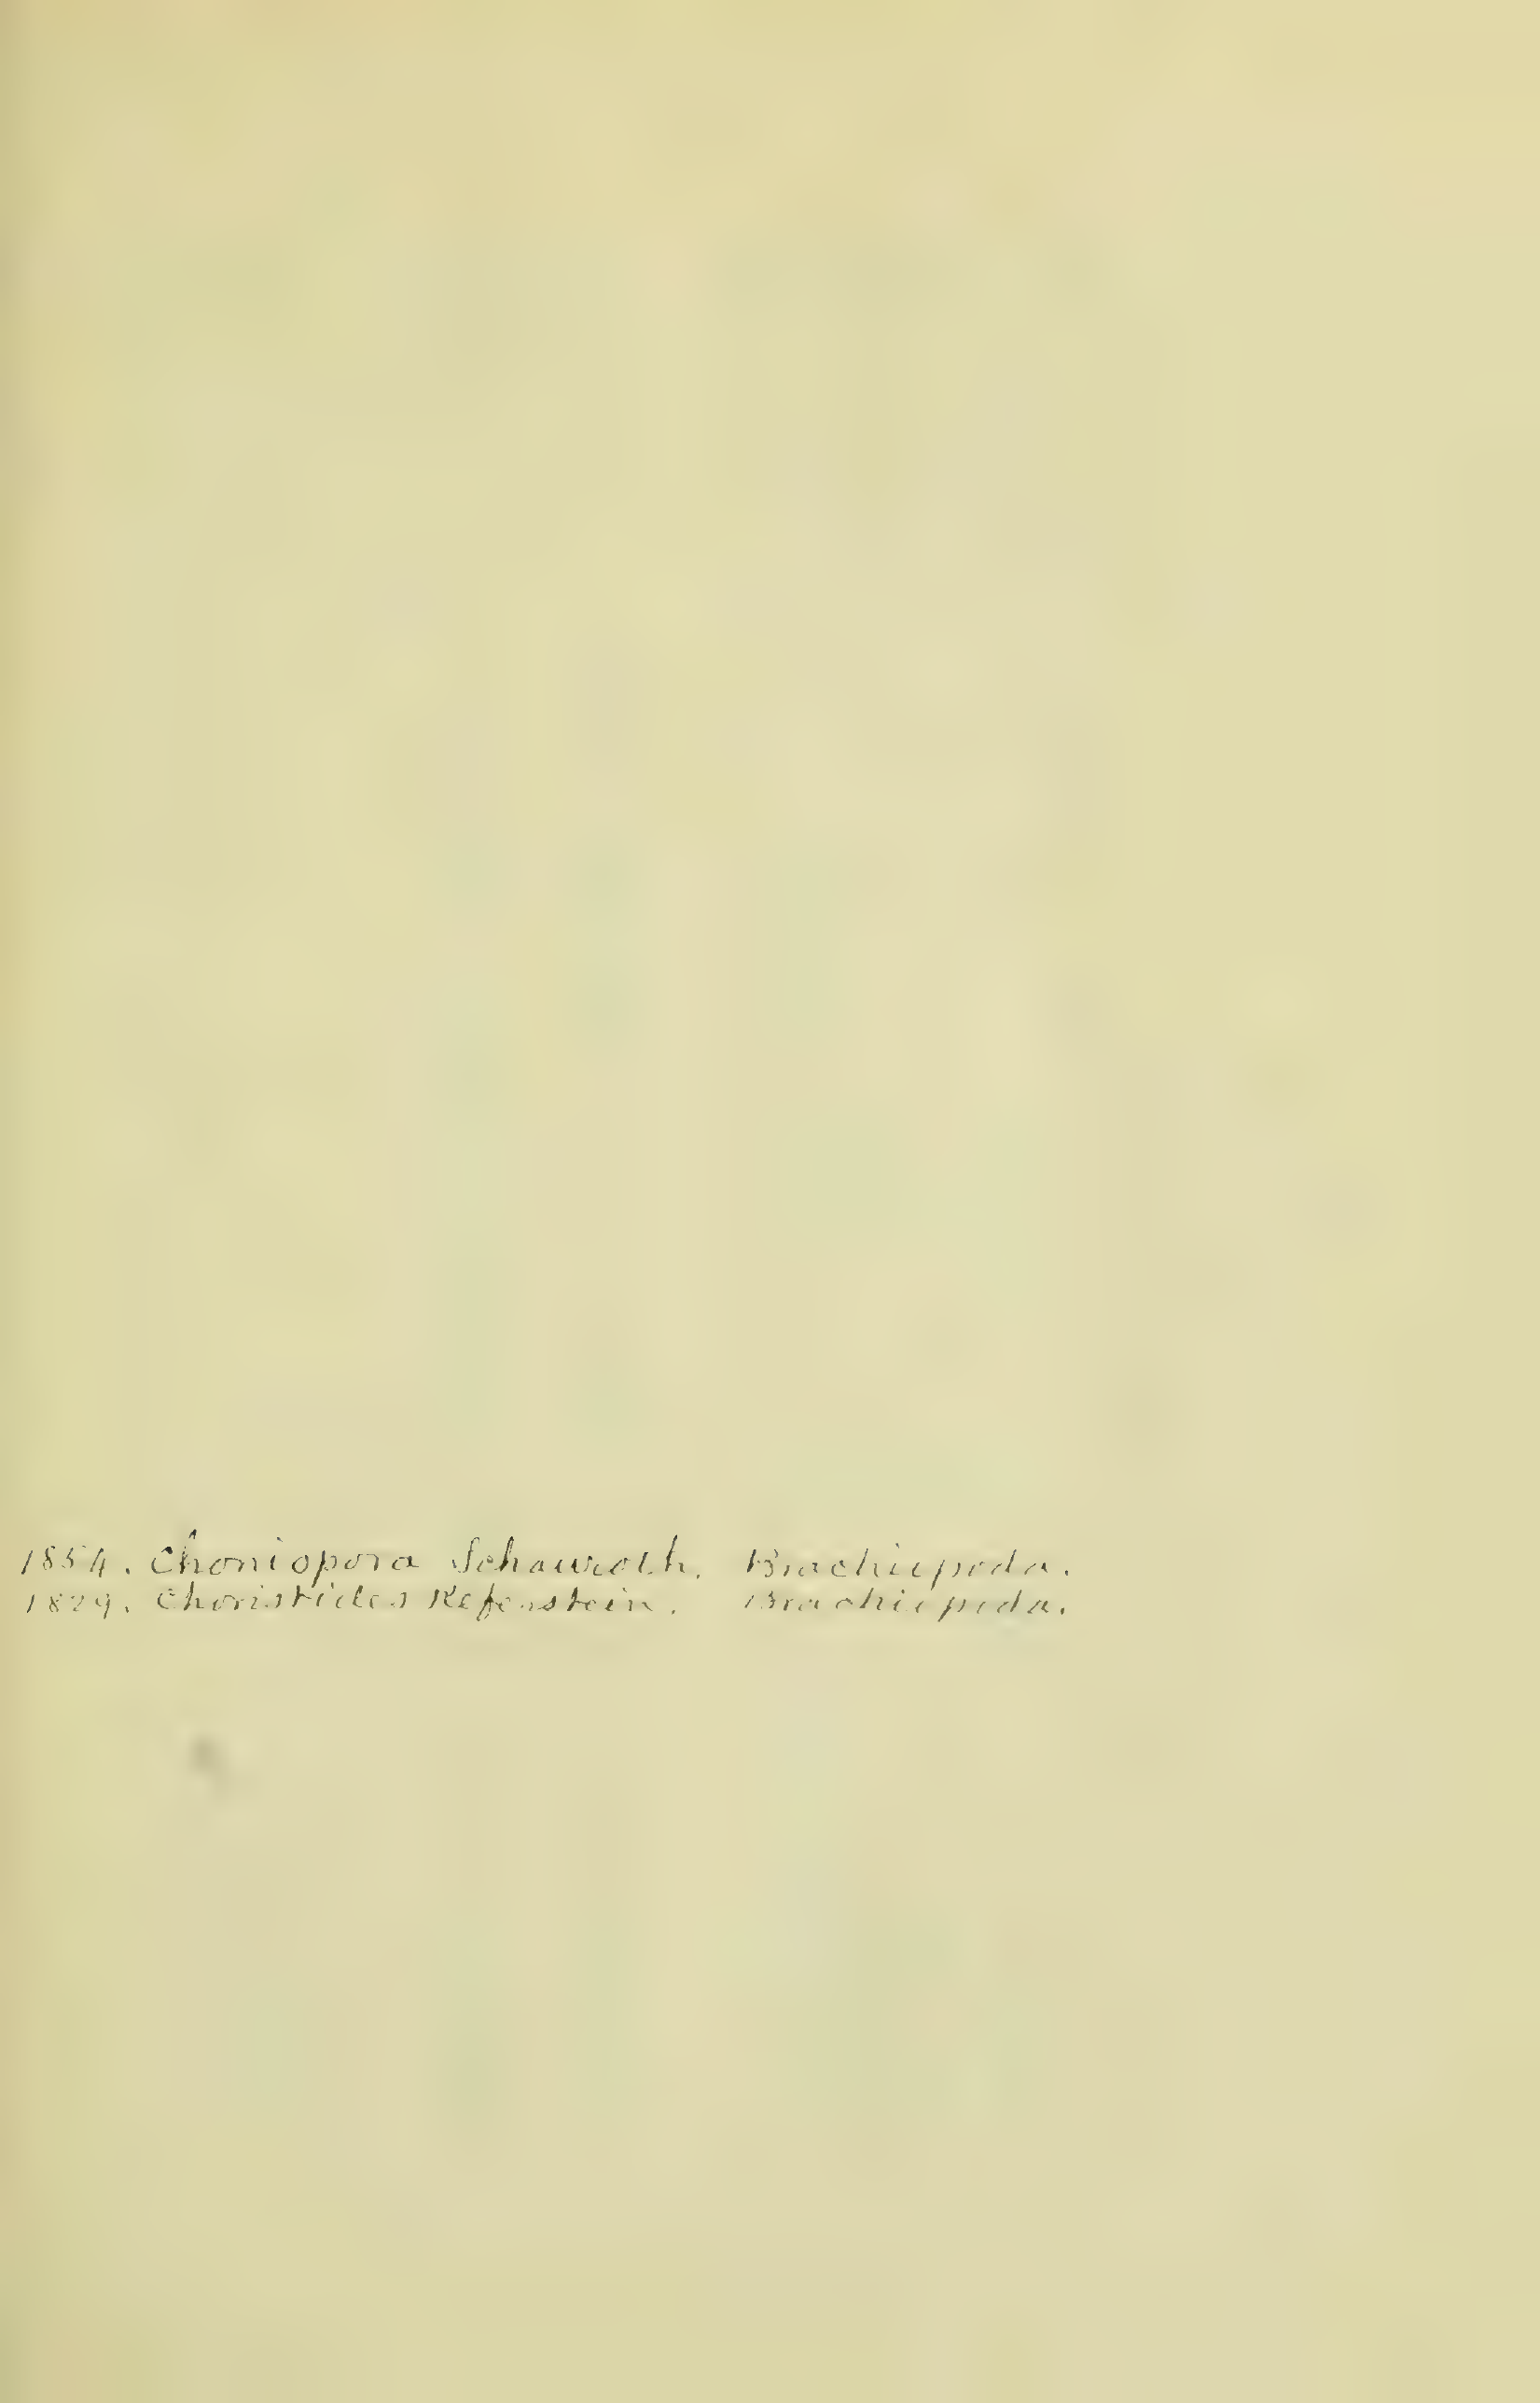 1854. Choniopora Schauroth. Brachiopoda.
1829. Choristides Kefenstein. Brachiopoda.